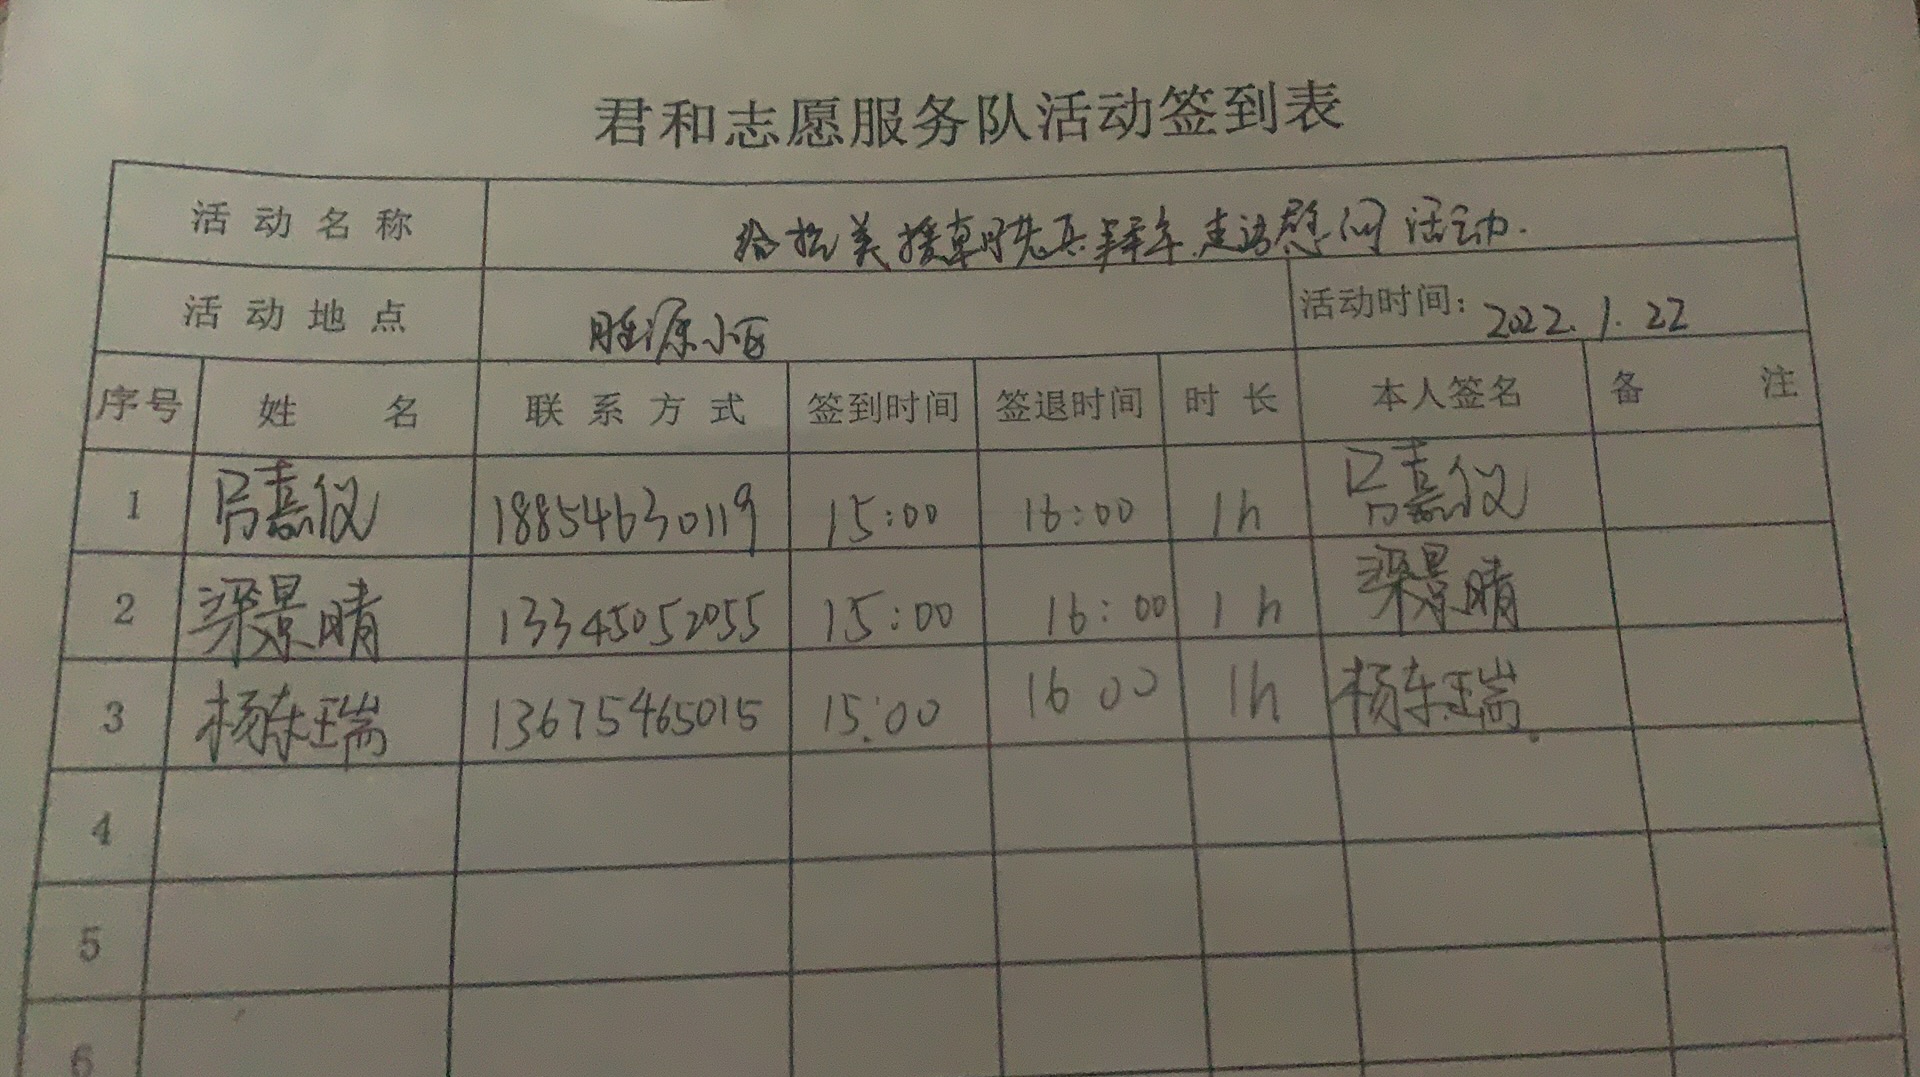 君和志愿服务队活动签到表
活动名称 给抗美援朝老兵拜年走访慰问活动.
活动地点 胜源小区 活动时间: 2022.1.22
序号 姓名 联系方式 签到时间 签退时间 时长 本人签名 备注
1 吕嘉仪 18854630119 15:00 16:00 1h 吕嘉仪
2 梁景晴 13345052055 15:00 16:00 1h 梁景晴
3 杨东瑞 13675465015 15:00 16 00 1h 杨东瑞
4
5
6